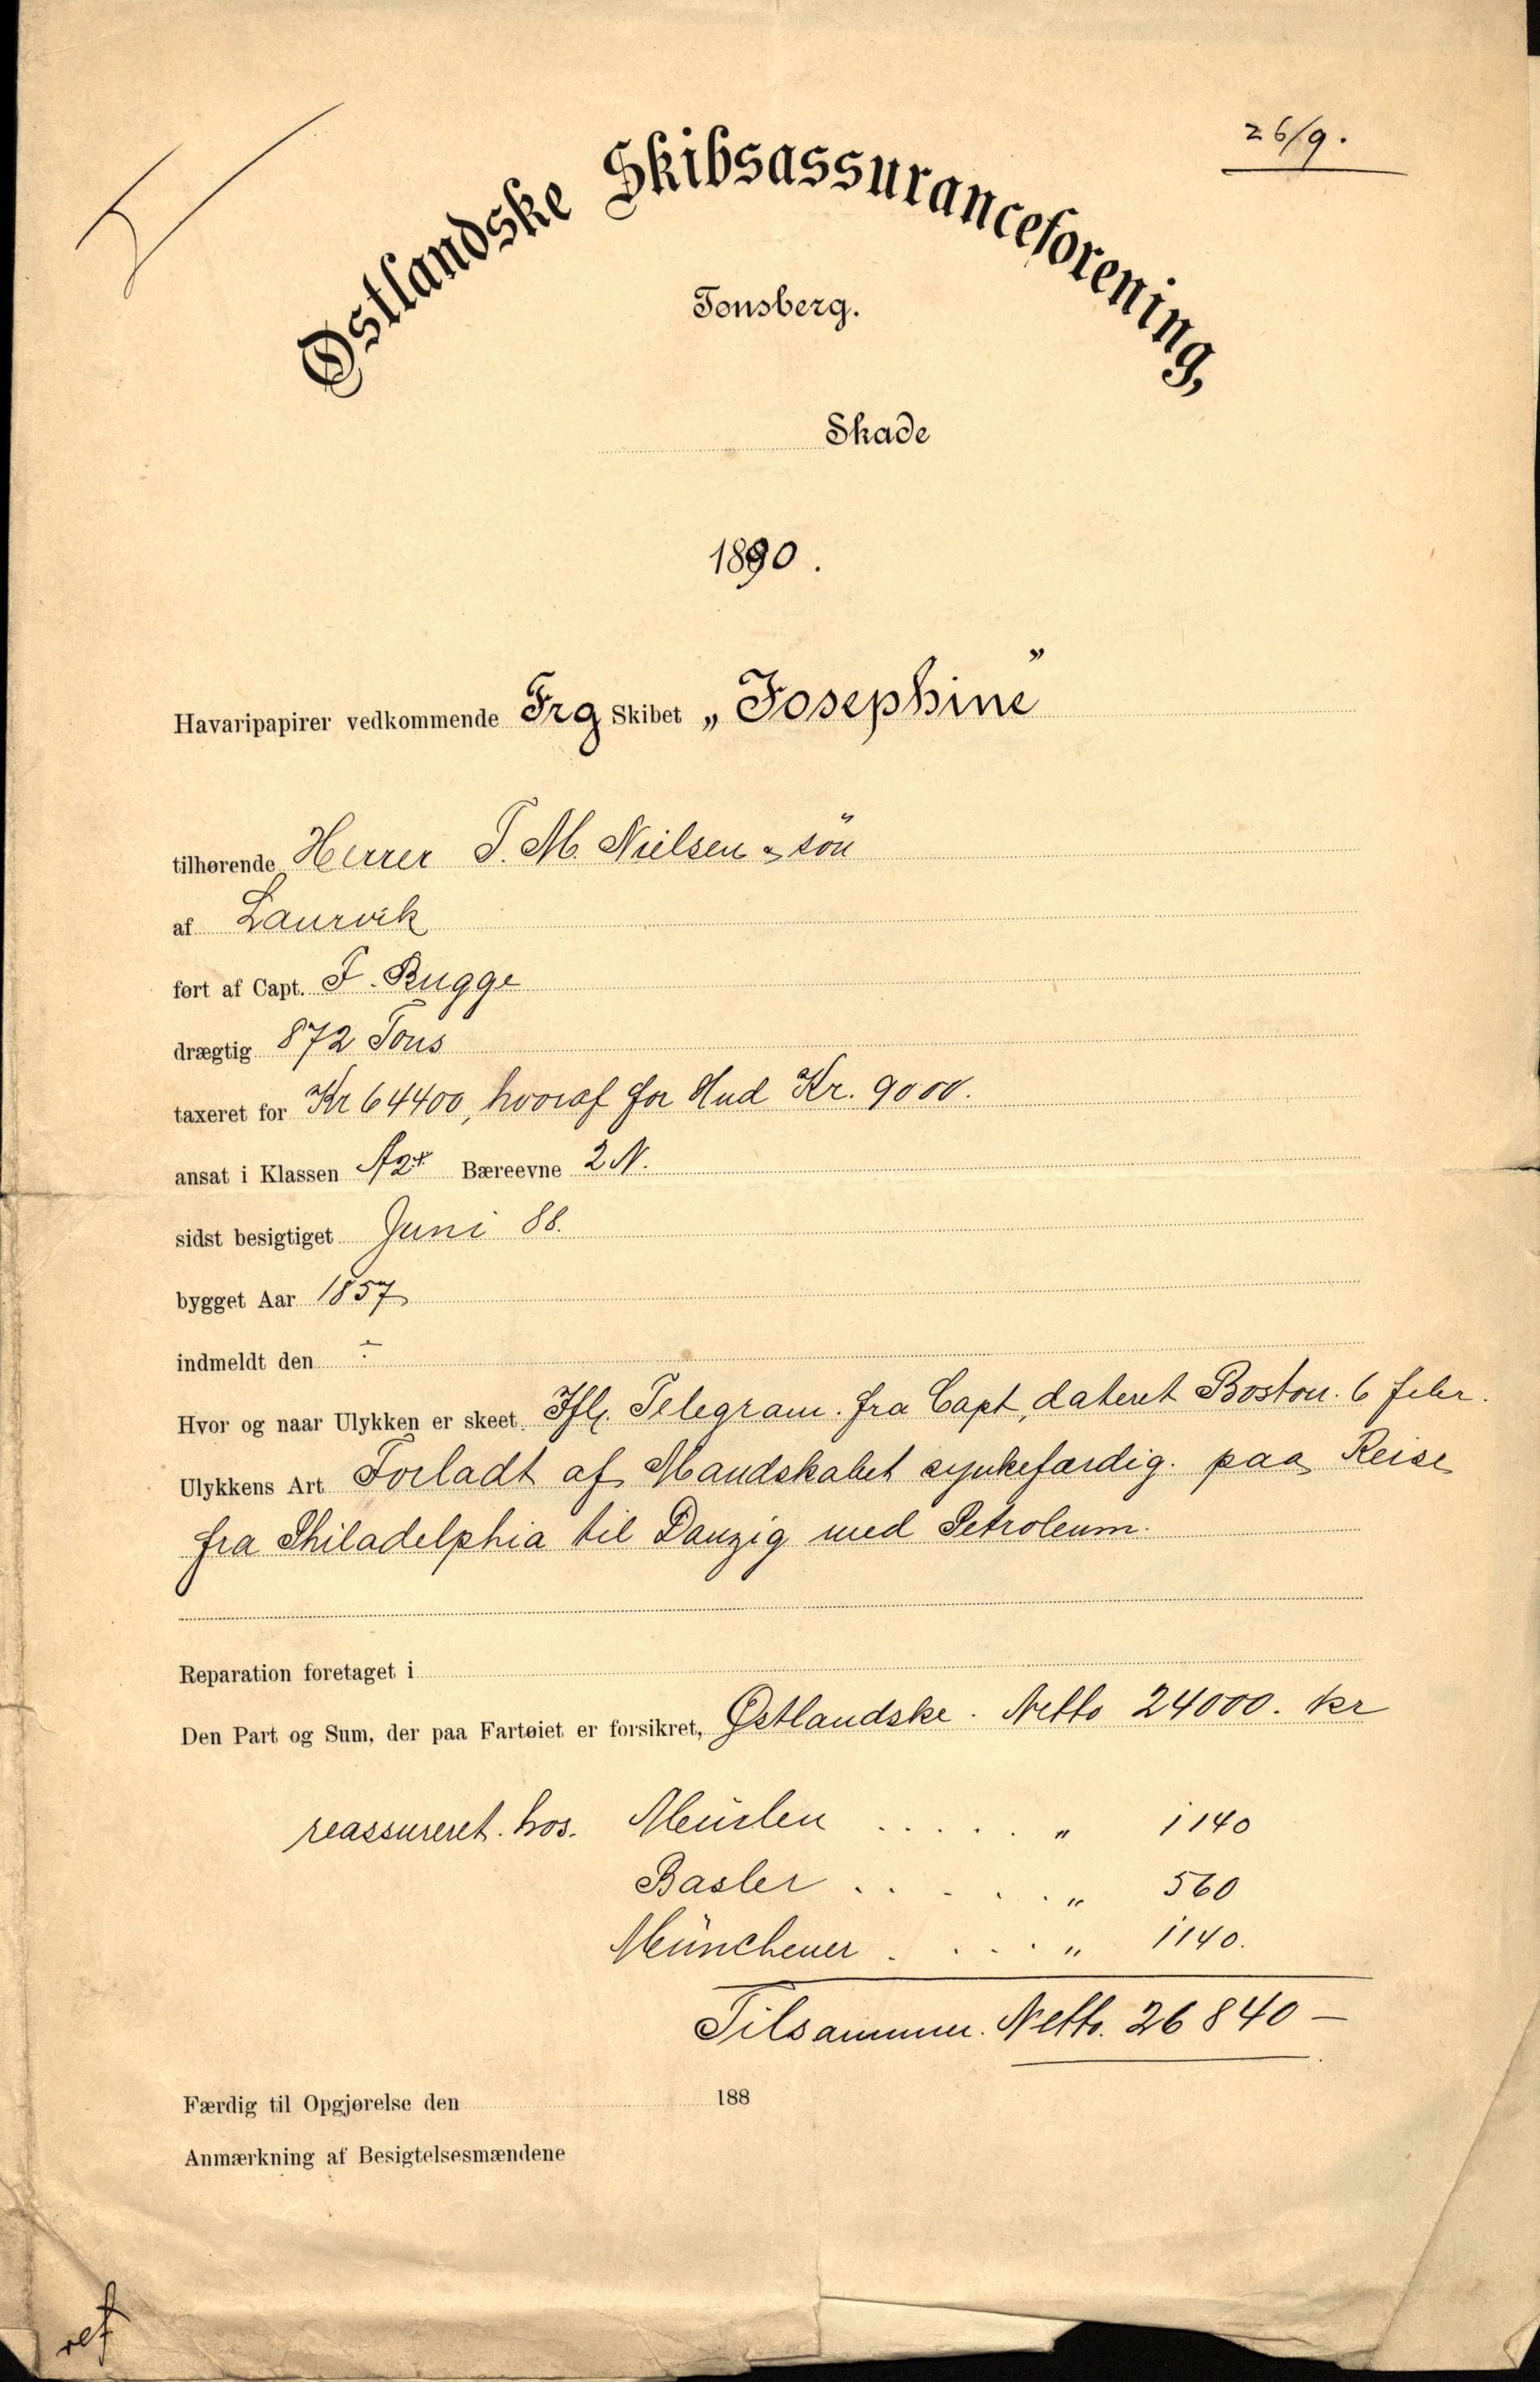 26/9.
Østlandske Skibsassuranceforening,
Tønsberg.
Skade
1890.
Havaripapirer vedkommende Frg Skibet „Josephine"
tilhørende Herrer P. M. Nielsen & sön
af Laurvik
ført af Capt. F. Bugge
drægtig 872 Tons
taxeret for Kr 64400, hvoraf for Hud Kr. 9000.
ansat i Klassen A2* Bæreevne 2 N.
sidst besigtiget Juni 88.
bygget Aar 1857
indmeldt den ÷
Hvor og naar Ulykken er skeet. Ifl. Telegram. fra Capt, dateret Boston. 6 febr.
Ulykkens Art Forladt af Mandskabet synkefærdig. paa Reise
fra Philadelphia til Danzig med Petroleum.
Reparation foretaget i
Den Part og Sum, der paa Fartøiet er forsikret, Østlandske. Netto 24000. kr
reassureret. hos. ..... " 1140
Basler ...... " 560
Münchener ..... " 1140.
Tilsammen. Netto. 26840 —
Færdig til Opgjørelse den 188
Anmærkning af Besigtelsesmændene
ref